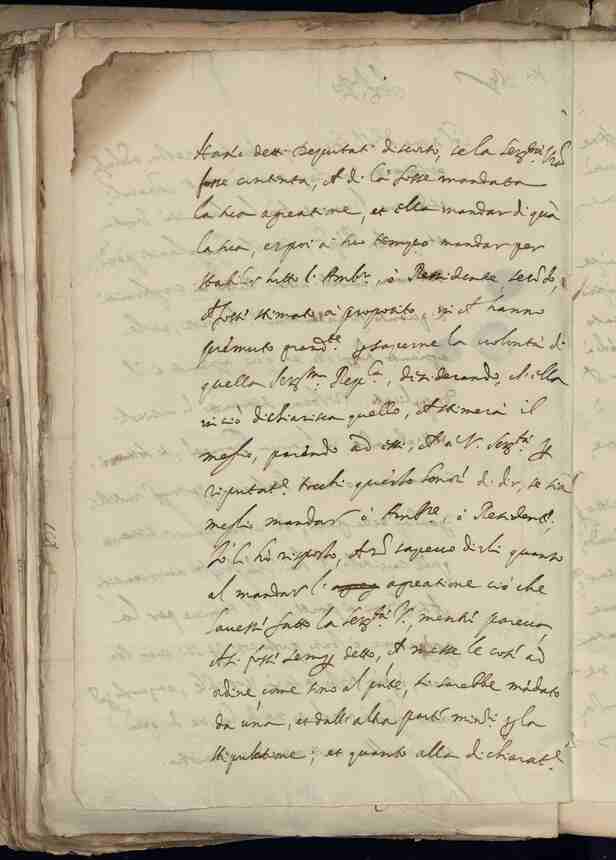 Hanno detti Deputati discorso, se la Serᵐᵃ Vrã
fosse contenta, ch di là fosse mandata
la sua agreatione, et ella mandar di quà
la sua, e poi a suo tempo mandar per
stabilir tutto l'Ambʳ, ò Residente secõdo,
ch fosse stimato a proposito, mi ch hanno
premuto grandᵗᵉ saperne la volontà di
quella Serᵐᵃ Repᶜᵃ, desiderando, ch'ella
in ciò dichiarisca quello, ch stimerà il
meglio, parendo ad essi, ch a V. Serᵗà
riputatᵉ tocchi questo honor di dir, se sia
meglio mandar ò Ambʳᵉ, ò Residente,
Io li hò risposto, ch nõ sapevo dirli quanto
al mandar l' agreatione ciò che
havesse fatto la Serᵗà V., mentre pareva
ch si fosse sempʳ detto, ch messe le cose ad
ordine, come sono al pñte, si sarebbe mãdato
da una, et dall'altra parte la
stipulatione; et quanto alla dichiaratᵉ